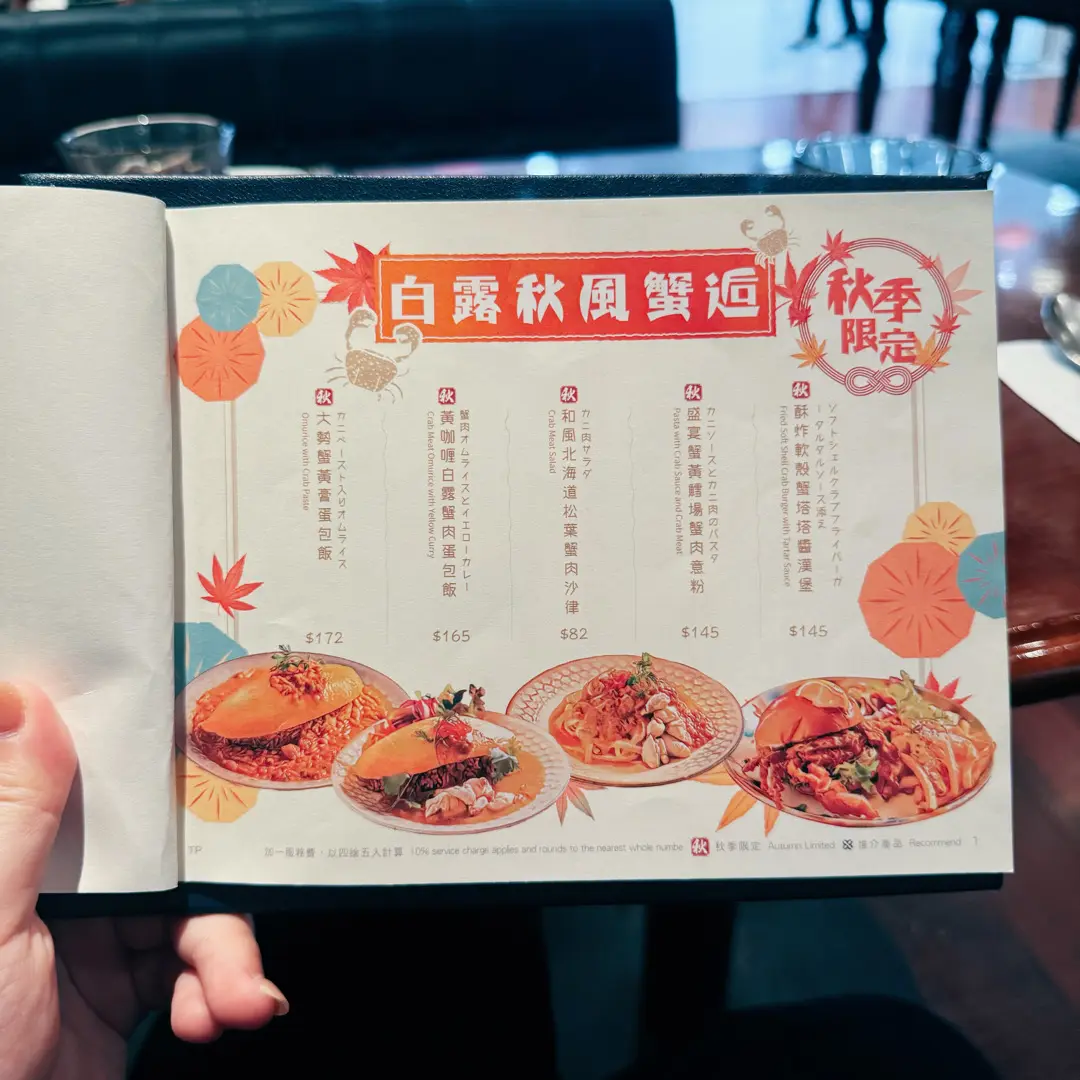 白露秋風蟹逅
秋季
限定
秋
ソフトシェルクラブフライバーガ
ータルタルソース添え
酥炸軟殼蟹塔塔醬漢堡
Fried Soft Shell Crab Burger with Tartar Sauce
$145
秋
カニソースとカニ肉のパスタ
盛宴蟹黃鱈場蟹肉意粉
Pasta with Crab Sauce and Crab Meat
$145
秋
カニ肉サラダ
和風北海道松葉蟹肉沙律
Crab Meat Salad
$82
秋
蟹肉オムライスとイエローカレー
黃咖喱白露蟹肉蛋包飯
Crab Meat Omurice with Yellow Curry
$165
秋
カニペースト入りオムライス
大勢蟹黃膏蛋包飯
Omurice with Crab Paste
$172
TP
加一服務費，以四捨五入計算 10% service charge applies and rounds to the nearest whole numbe 秋 秋季限定 Autumn Limited 推介產品 Recommend 1